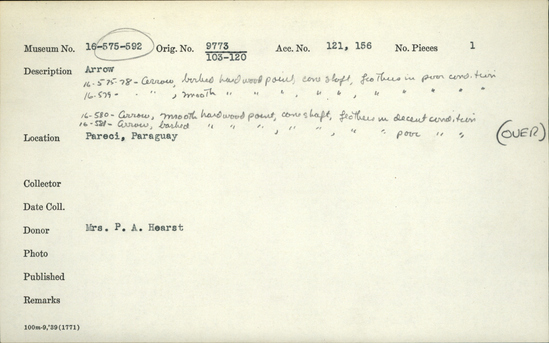 Museum No. 16-575-592 Orig. No. 9773 Acc. No. 121, 156 No. Pieces 1
103-120
Description Arrow
16-575-78 - Arrow, barbed hardwood point, cane shaft, feathers in poor condition
16-579 - " " , smooth " " " , " " , " " " " "
16-580 - Arrow, smooth hardwood point, cane shaft, feathers in decent condition
16-581 - Arrow, barbed " " " , " " , " " poor " "
(OVER)
Location Pareci, Paraguay
Collector
Date Coll.
Donor Mrs. P. A. Hearst
Photo
Published
Remarks
100m-9,'39(1771)